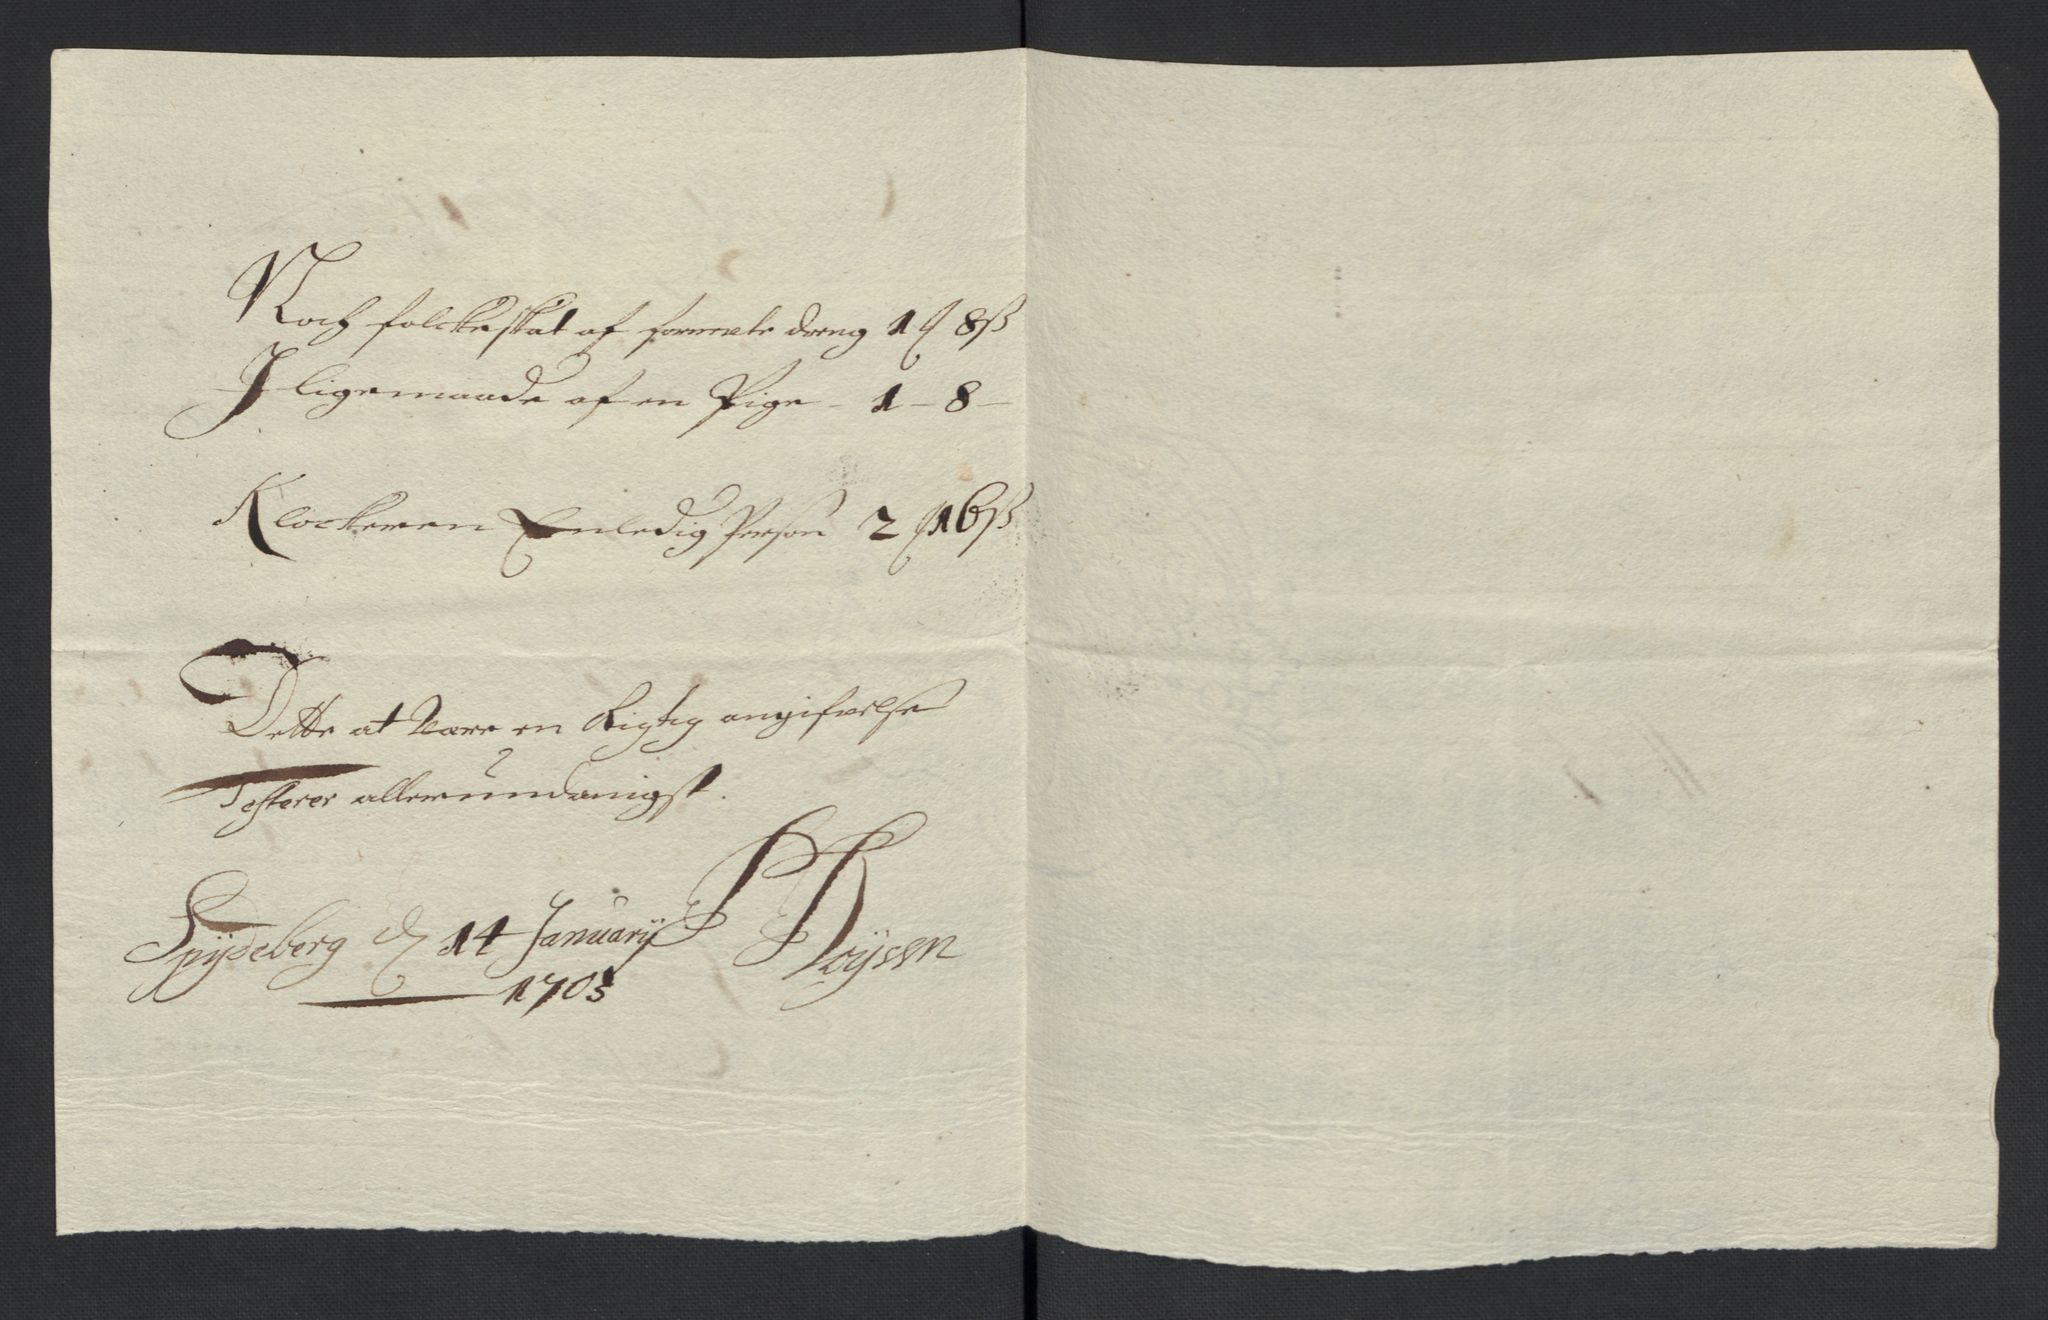 Noch folckeskat af formelte dreng 1 ƒ 8 ß
J ligemaade af en Pige - 1 - 8 -
Klockeren Enledig Person 2 ƒ 16 ß
Dette at Være en Rigtig angifvelse
Testerer allerundanigst.
Spydeberg d 14 January
1703
Røyssen